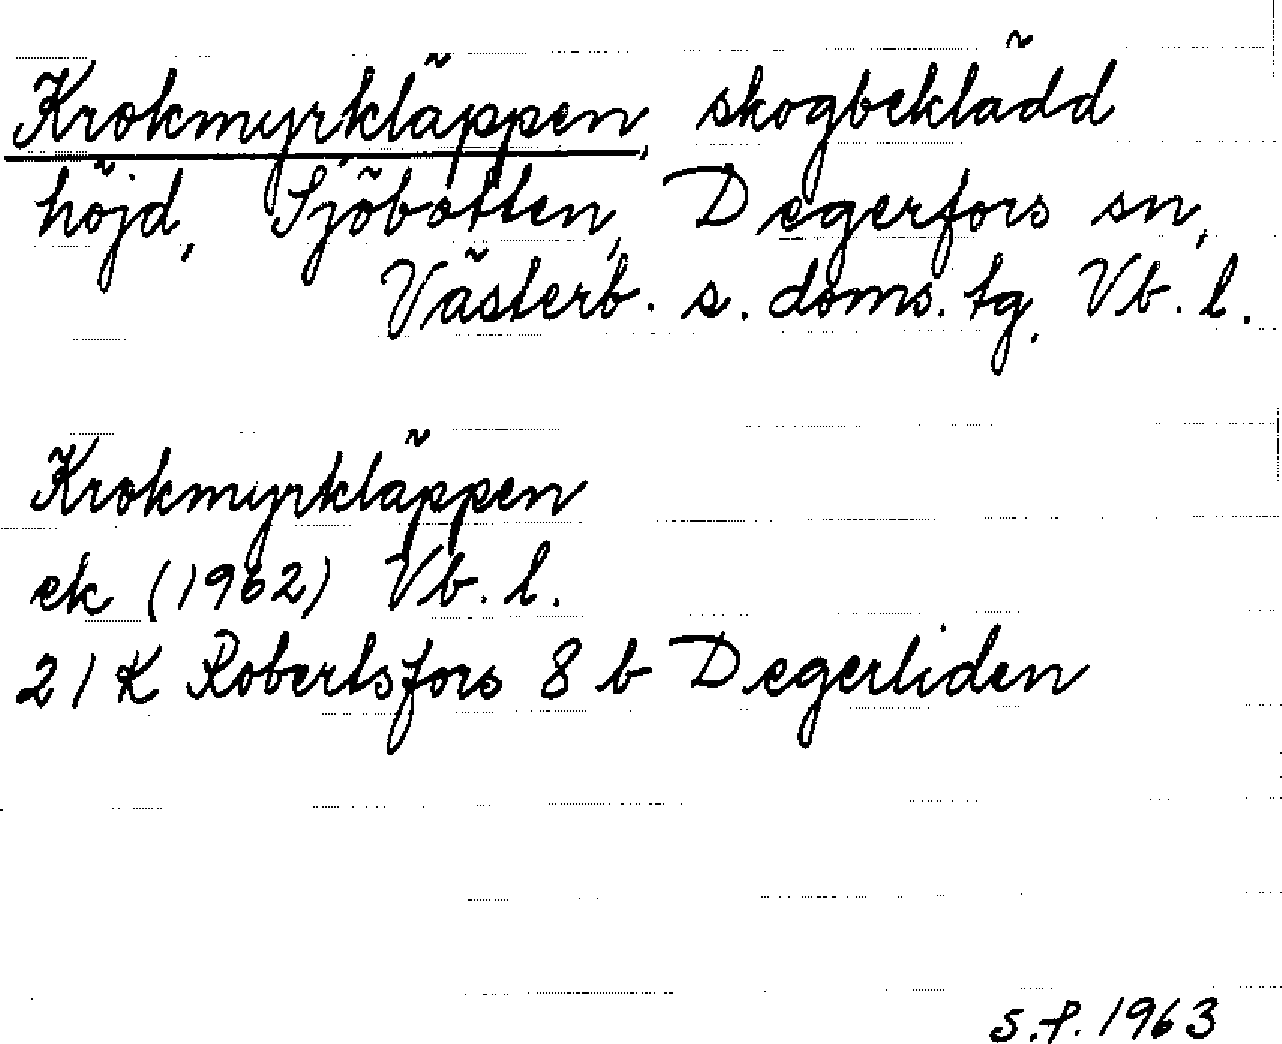 Krokmyrkläppen, skogbeklädd
höjd, Sjöbotten, Degerfors sn,
Västerb. s. doms. tg. Vb. l.
Krokmyrkläppen
ek (1962) Vb. l.
21 K Robertsfors 8 b Degerliden
S.P. 1963